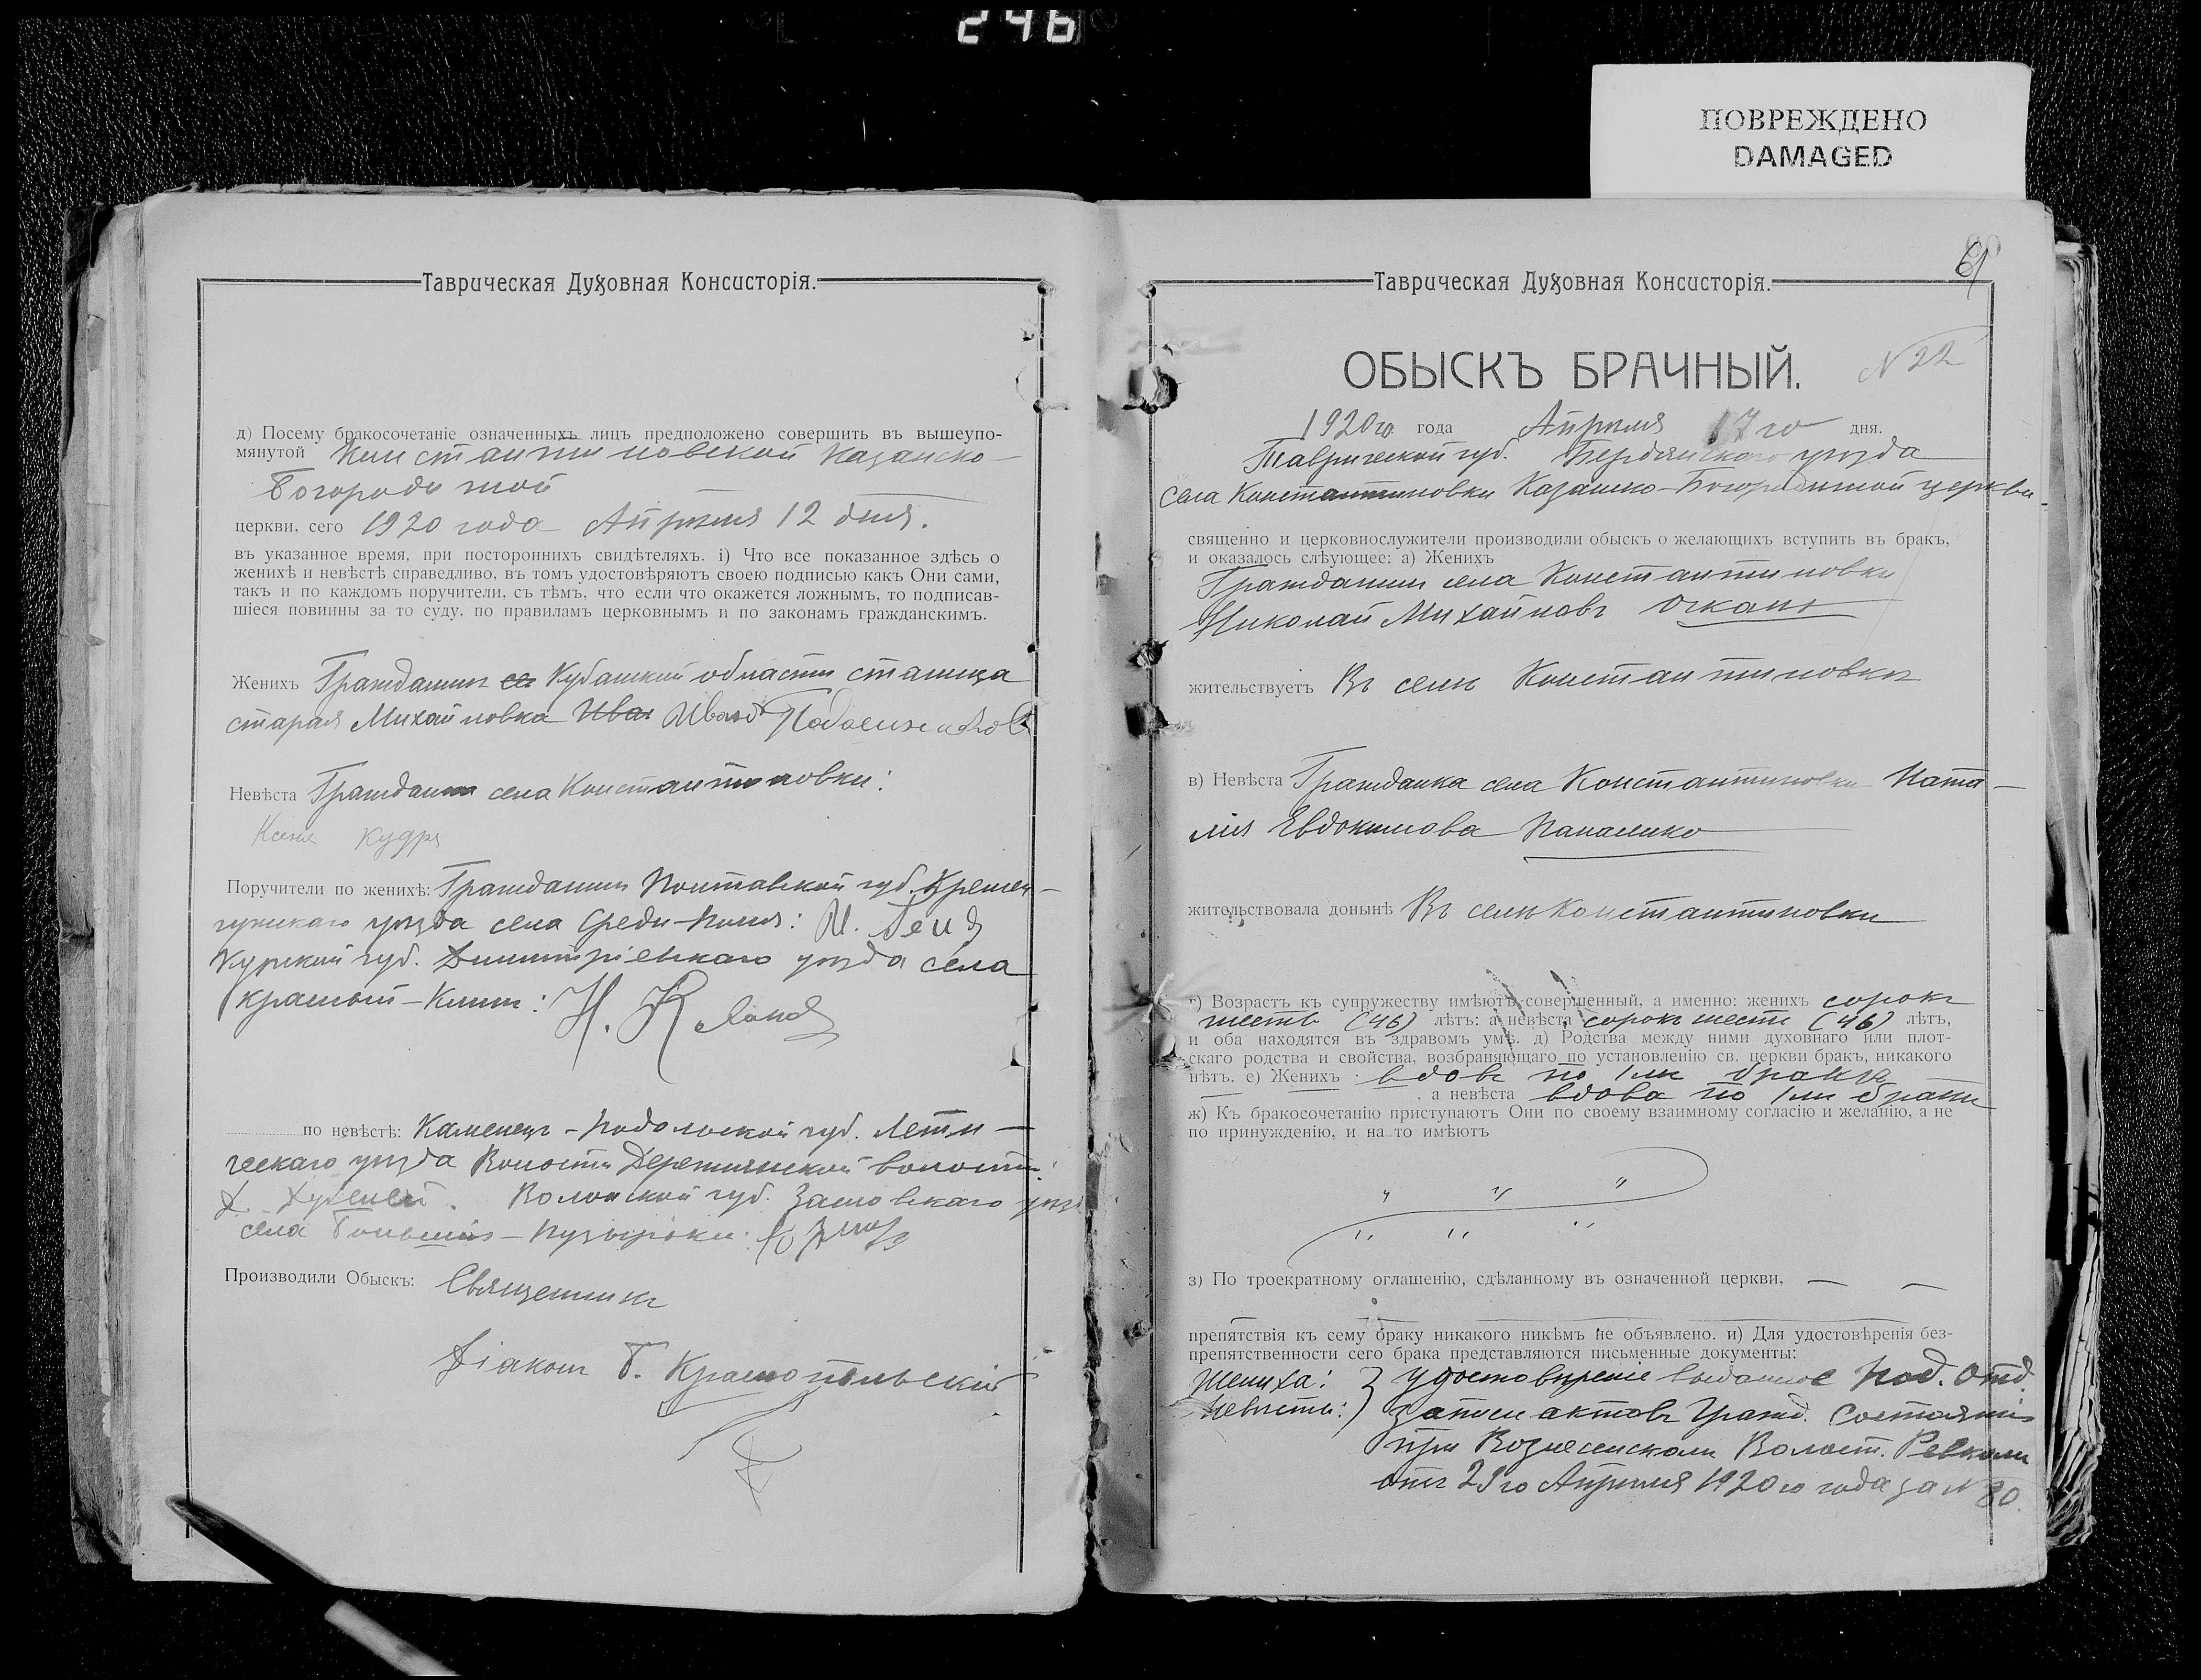 246
ПОВРЕЖДЕНО
DAMAGED
Таврическая Духовная Консисторія.
д) Посему бракосочетаніе означенныхъ лицъ предположено совершить въ вышеупо-
мянутой Константиновской Казанско-
Богородичной
церкви, сего 1920 года Апрѣля 12 дня.
въ указанное время, при постороннихъ свидѣтеляхъ. і) Что все показанное здѣсь о
женихѣ и невѣстѣ справедливо, въ томъ удостовѣряютъ своею подписью какъ Они сами,
такъ и по каждомъ поручители, съ тѣмъ, что если что окажется ложнымъ, то подписав-
шіеся повинны за то суду, по правиламъ церковнымъ и по законамъ гражданскимъ.
Женихъ Гражданинъ Кубанской области станица
старая Михайловка Иванъ
Невѣста села Константиновки:
Кудря
Поручители по женихѣ: Гражданинъ Полтавской губ. Кремен-
чугскаго уѣзда села
Курской губ. Дмитріевскаго уѣзда села
красный-Клинъ:
по невѣстѣ: Каменецъ-Подольской губ. Лети-
ческаго уѣзда волости
Волынской губ. Заславскаго
села
Производили Обыскъ: Священникъ
Діаконъ Г. Краснопольскій
Таврическая Духовная Консисторія.
61
ОБЫСКЪ БРАЧНЫЙ. N 22
1920го года Апрѣля 17го дня.
Таврической губ. Бердянскаго уѣзда
села Константиновки Казанско-Богородичной церкви
священно и церковнослужители производили обыскъ о желающихъ вступить въ бракъ,
и оказалось слѣующее: а) Женихъ
Гражданинъ села Константиновки
Николай Михайловъ
жительствуетъ Въ селѣ Константиновкѣ
в) Невѣста Гражданка села Константиновки Ната-
лія Евдокимова
жительствовала донынѣ Въ селѣ Константиновки
г) Возрастъ къ супружеству имѣютъ совершенный, а именно: женихъ сорокъ
шесть (46) лѣтъ: а невѣста сорокъ шесть (46) лѣтъ,
и оба находятся въ здравомъ умѣ. д) Родства между ними духовнаго или плот-
скаго родства и свойства, возбраняющаго по установленію св. церкви бракъ, никакого
нѣтъ. е) Женихъ вдовъ по 1мъ бракѣ
, а невѣста вдова по 1мъ бракѣ
ж) Къ бракосочетанію приступаютъ Они по своему взаимному согласію и желанію, а не
по принужденію, и на то имѣютъ
" " "
" " "
з) По троекратному оглашенію, сдѣланному въ означенной церкви,
препятствія къ сему браку никакого никѣмъ не объявлено. и) Для удостовѣренія без-
препятственности сего брака представляются письменные документы:
Жениха: } Удостовѣреніе выданное Под. Отд.
Невѣсты: } записи актовъ Гражд. Состоянія
при Вознесенскомъ Волост. Ревкомѣ
отъ го Апрѣля 1920го года за N 80.